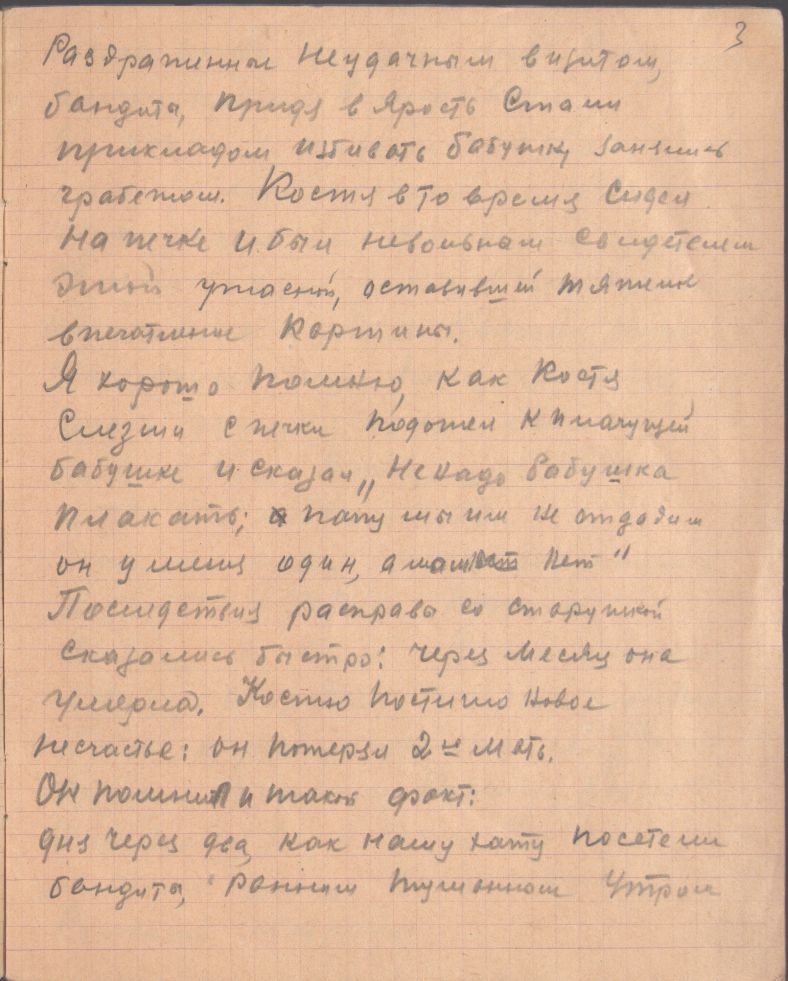 3
Раздраженные неудачным визитом,
бандиты, придя в ярость стали
прикладом избивать бабушку, занялись
грабежом. Костя в то время сидел
на печке и был невольным свидетелем
этой ужасной, оставившей тяжелое
впечатление картины.
Я хорошо помню, как Костя
слезши с печки подошел к плачущей
бабушке и сказал „Ненадо бабушка
плакать; папу мы им не отдадим
он у меня один, а мамы нет"
Последствия расправы со старушкой
сказались быстро: через месяц она
умерла. Костю постигло новое
несчастье: он потерял 2ую мать.
Он помнил и такой факт:
дня через два, как нашу хату посетели
бандиты, ранним туманным утром